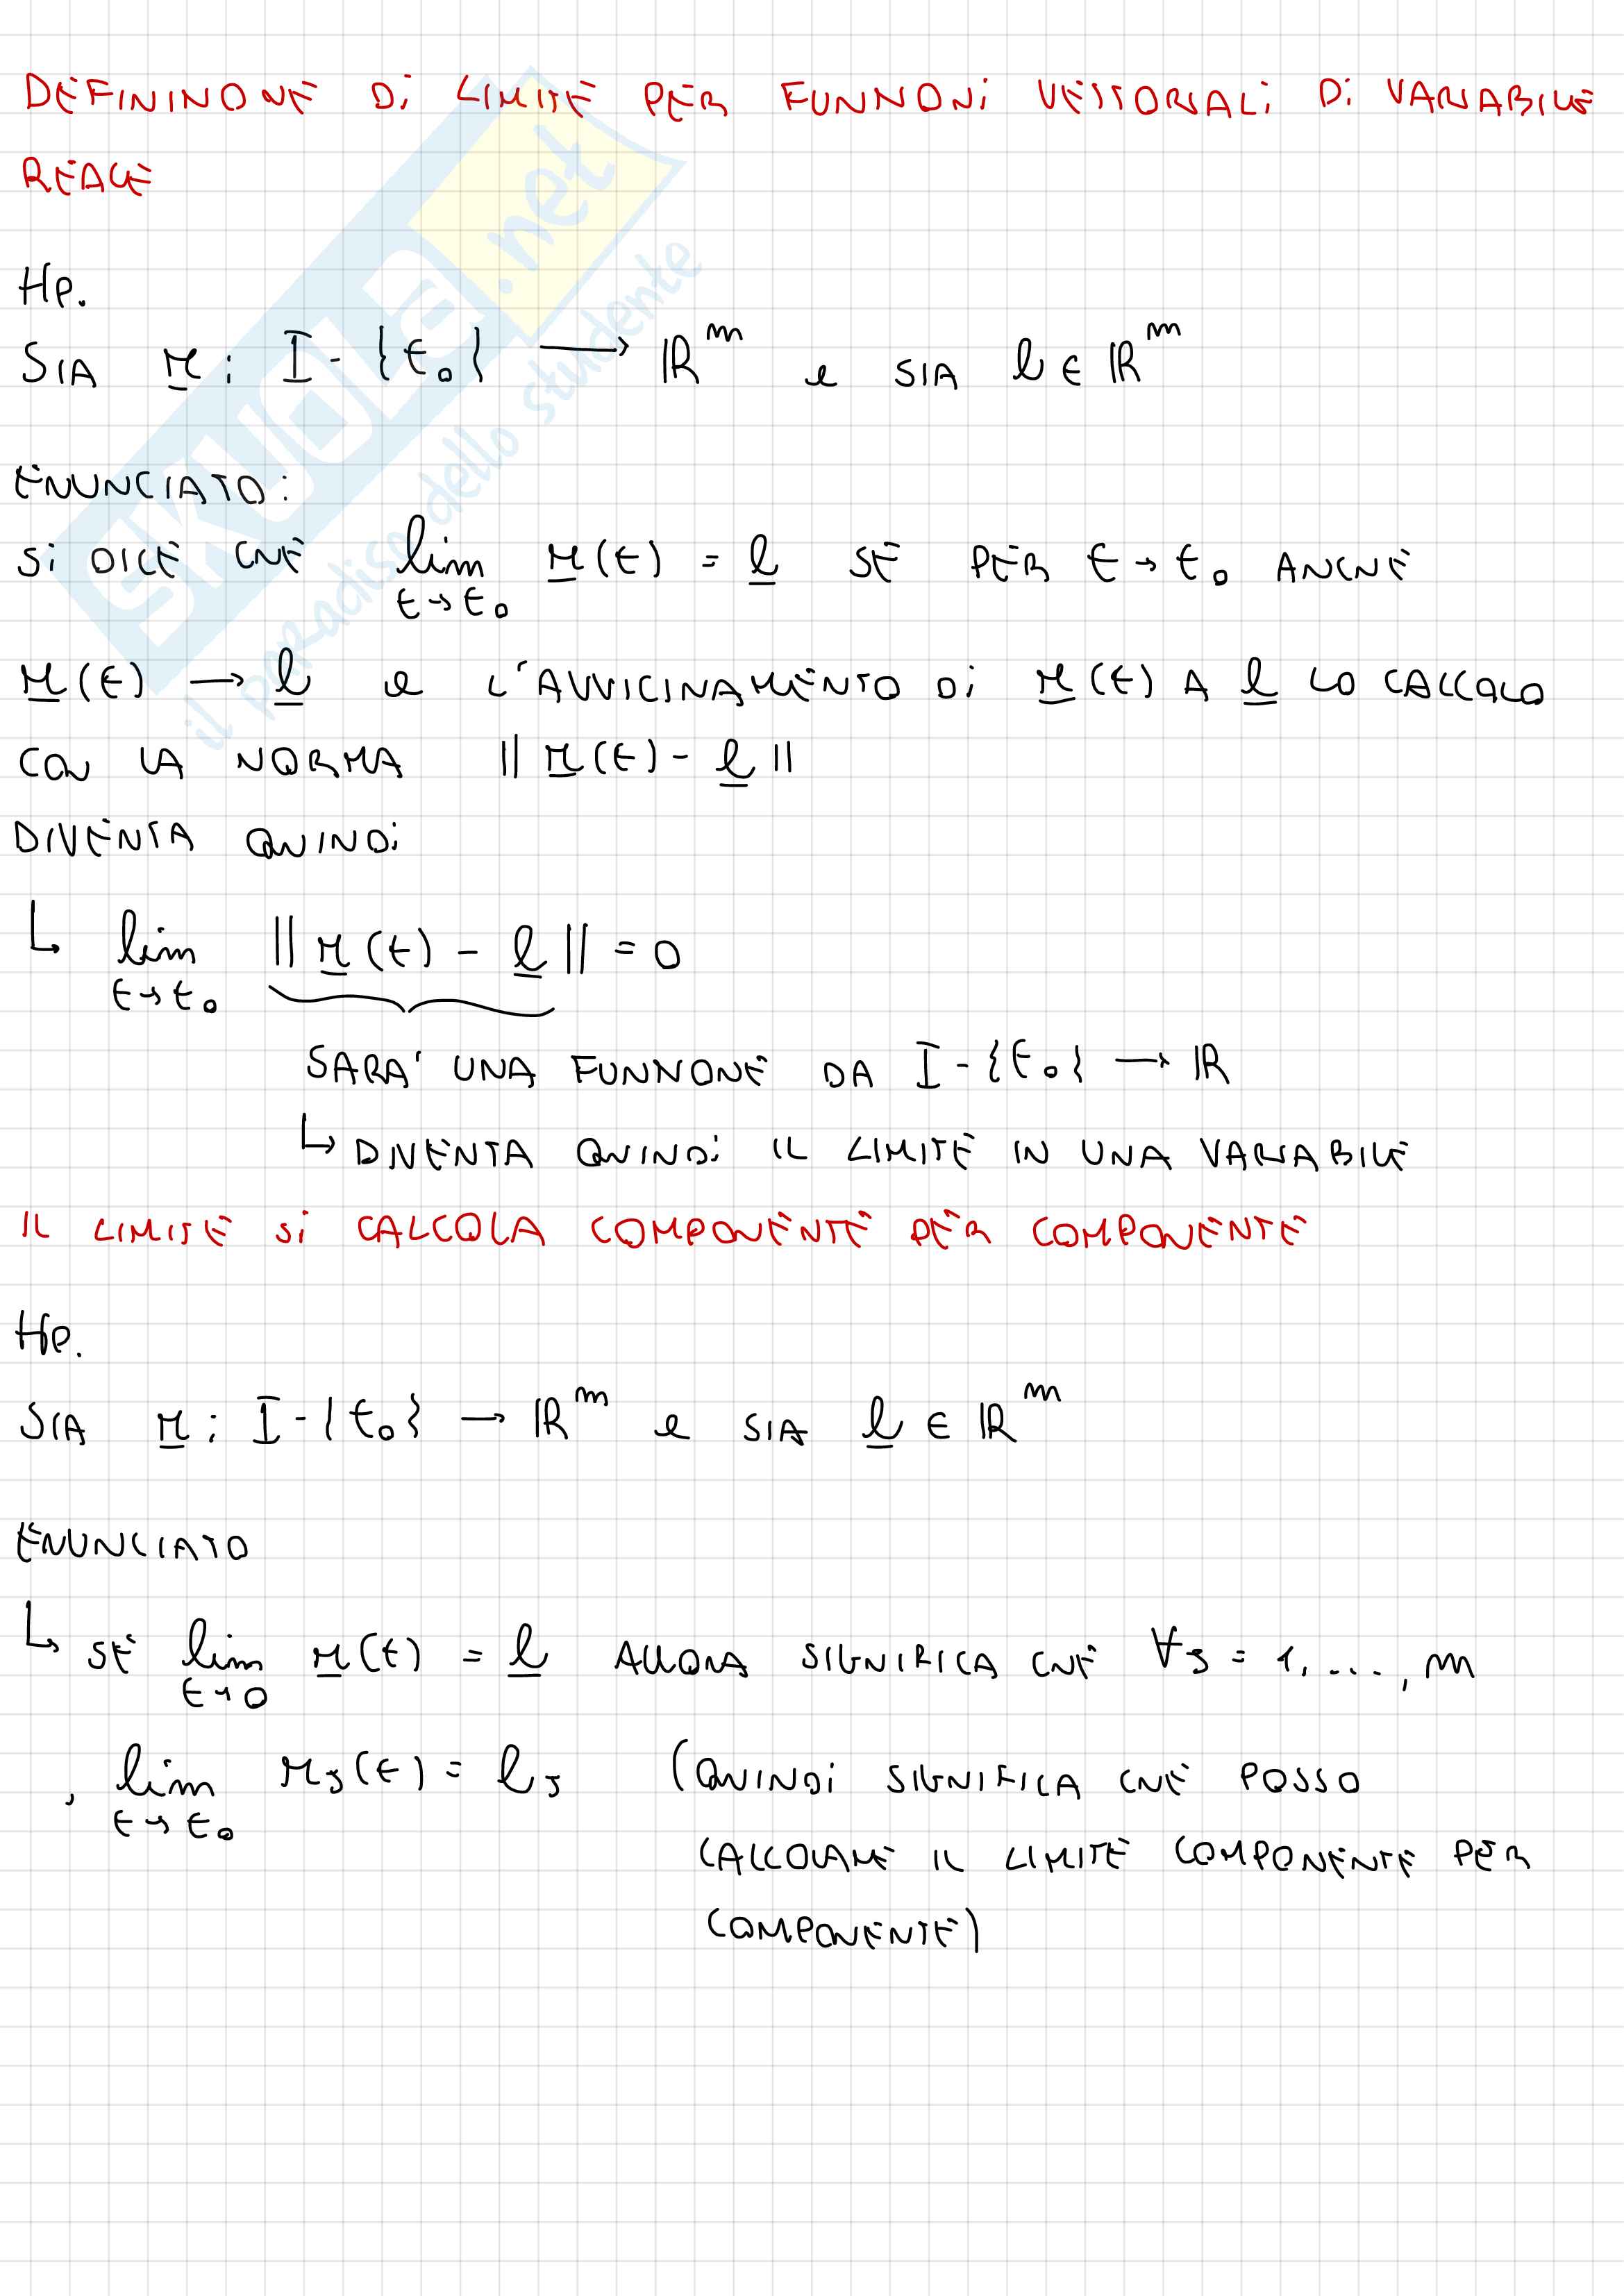 DEFINIZIONE DI LIMITE PER FUNZIONI VETTORIALI DI VARIABILE
REALE
Hp.
SIA r : I - {t₀} → ℝᵐ e SIA l ∈ ℝᵐ
ENUNCIATO:
SI DICE CHE lim t→t₀ r(t) = l SE PER t → t₀ ANCHE
r(t) → l e L'AVVICINAMENTO DI r(t) A l LO CALCOLO
CON LA NORMA || r(t) - l ||
DIVENTA QUINDI
↳ lim t→t₀ || r(t) - l || = 0
SARA' UNA FUNZIONE DA I - {t₀} → ℝ
↳ DIVENTA QUINDI IL LIMITE IN UNA VARIABILE
IL LIMITE SI CALCOLA COMPONENTE PER COMPONENTE
Hp.
SIA r : I - {t₀} → ℝᵐ e SIA l ∈ ℝᵐ
ENUNCIATO
↳ SE lim t→0 r(t) = l ALLORA SIGNIFICA CHE ∀J = 1, ..., m
, lim t→t₀ rJ(t) = lJ (QUINDI SIGNIFICA CHE POSSO
CALCOLARE IL LIMITE COMPONENTE PER
COMPONENTE)
SKUOLA.net
il paradiso dello studente